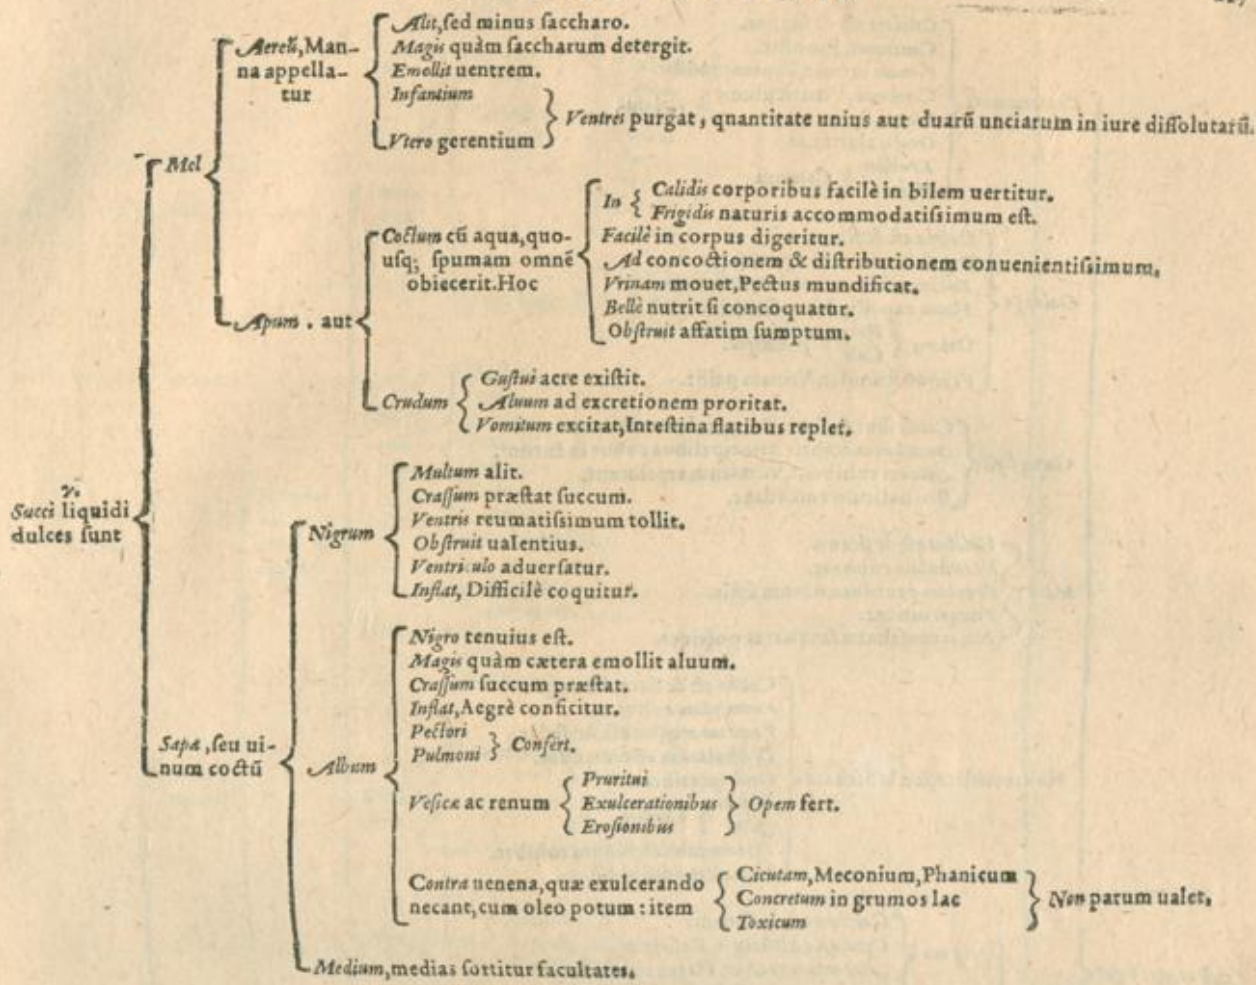 Alit, ſed minus ſaccharo.
Aereū, Man-
na appella-
tur
Magis quàm ſaccharum detergit.
Emollit uentrem.
Infantium
Vtero gerentium
Ventres purgat, quantitate unius aut duarū unciarum in iure diſſolutarū.
Mel
In
Calidis corporibus facilè in bilem uertitur.
Frigidis naturis accommodatiſsimum eſt.
Coctum cū aqua, quo-
uſq; ſpumam omnē
obiecerit. Hoc
Facilè in corpus digeritur.
Ad concoctionem & diſtributionem conuenientiſsimum,
Vrinam mouet, Pectus mundificat.
Bellè nutrit ſi concoquatur.
Obſtruit affatim ſumptum.
Apum, aut
Crudum
Guſtui acre exiſtit.
Aluum ad excretionem proritat.
Vomitum excitat, Inteſtina flatibus replet.
Succi liquidi
dulces ſunt
Nigrum
Multum alit.
Craſſum præſtat ſuccum.
Ventris reumatiſsimum tollit.
Obſtruit ualentius.
Ventriculo aduerſatur.
Inflat, Difficilè coquitur.
Sapa, ſeu ui-
num coctū
Album
Nigro tenuius eſt.
Magis quàm cætera emollit aluum.
Craſſum ſuccum præſtat.
Inflat, Aegrè conficitur.
Pectori
Pulmoni
Confert.
Veſicæ ac renum
Pruritui
Exulcerationibus
Eroſionibus
Opem fert.
Contra uenena, quæ exulcerando
necant, cum oleo potum : item
Cicutam, Meconium, Phanicum
Concretum in grumos lac
Toxicum
Non parum ualet,
Medium, medias ſortitur facultates.